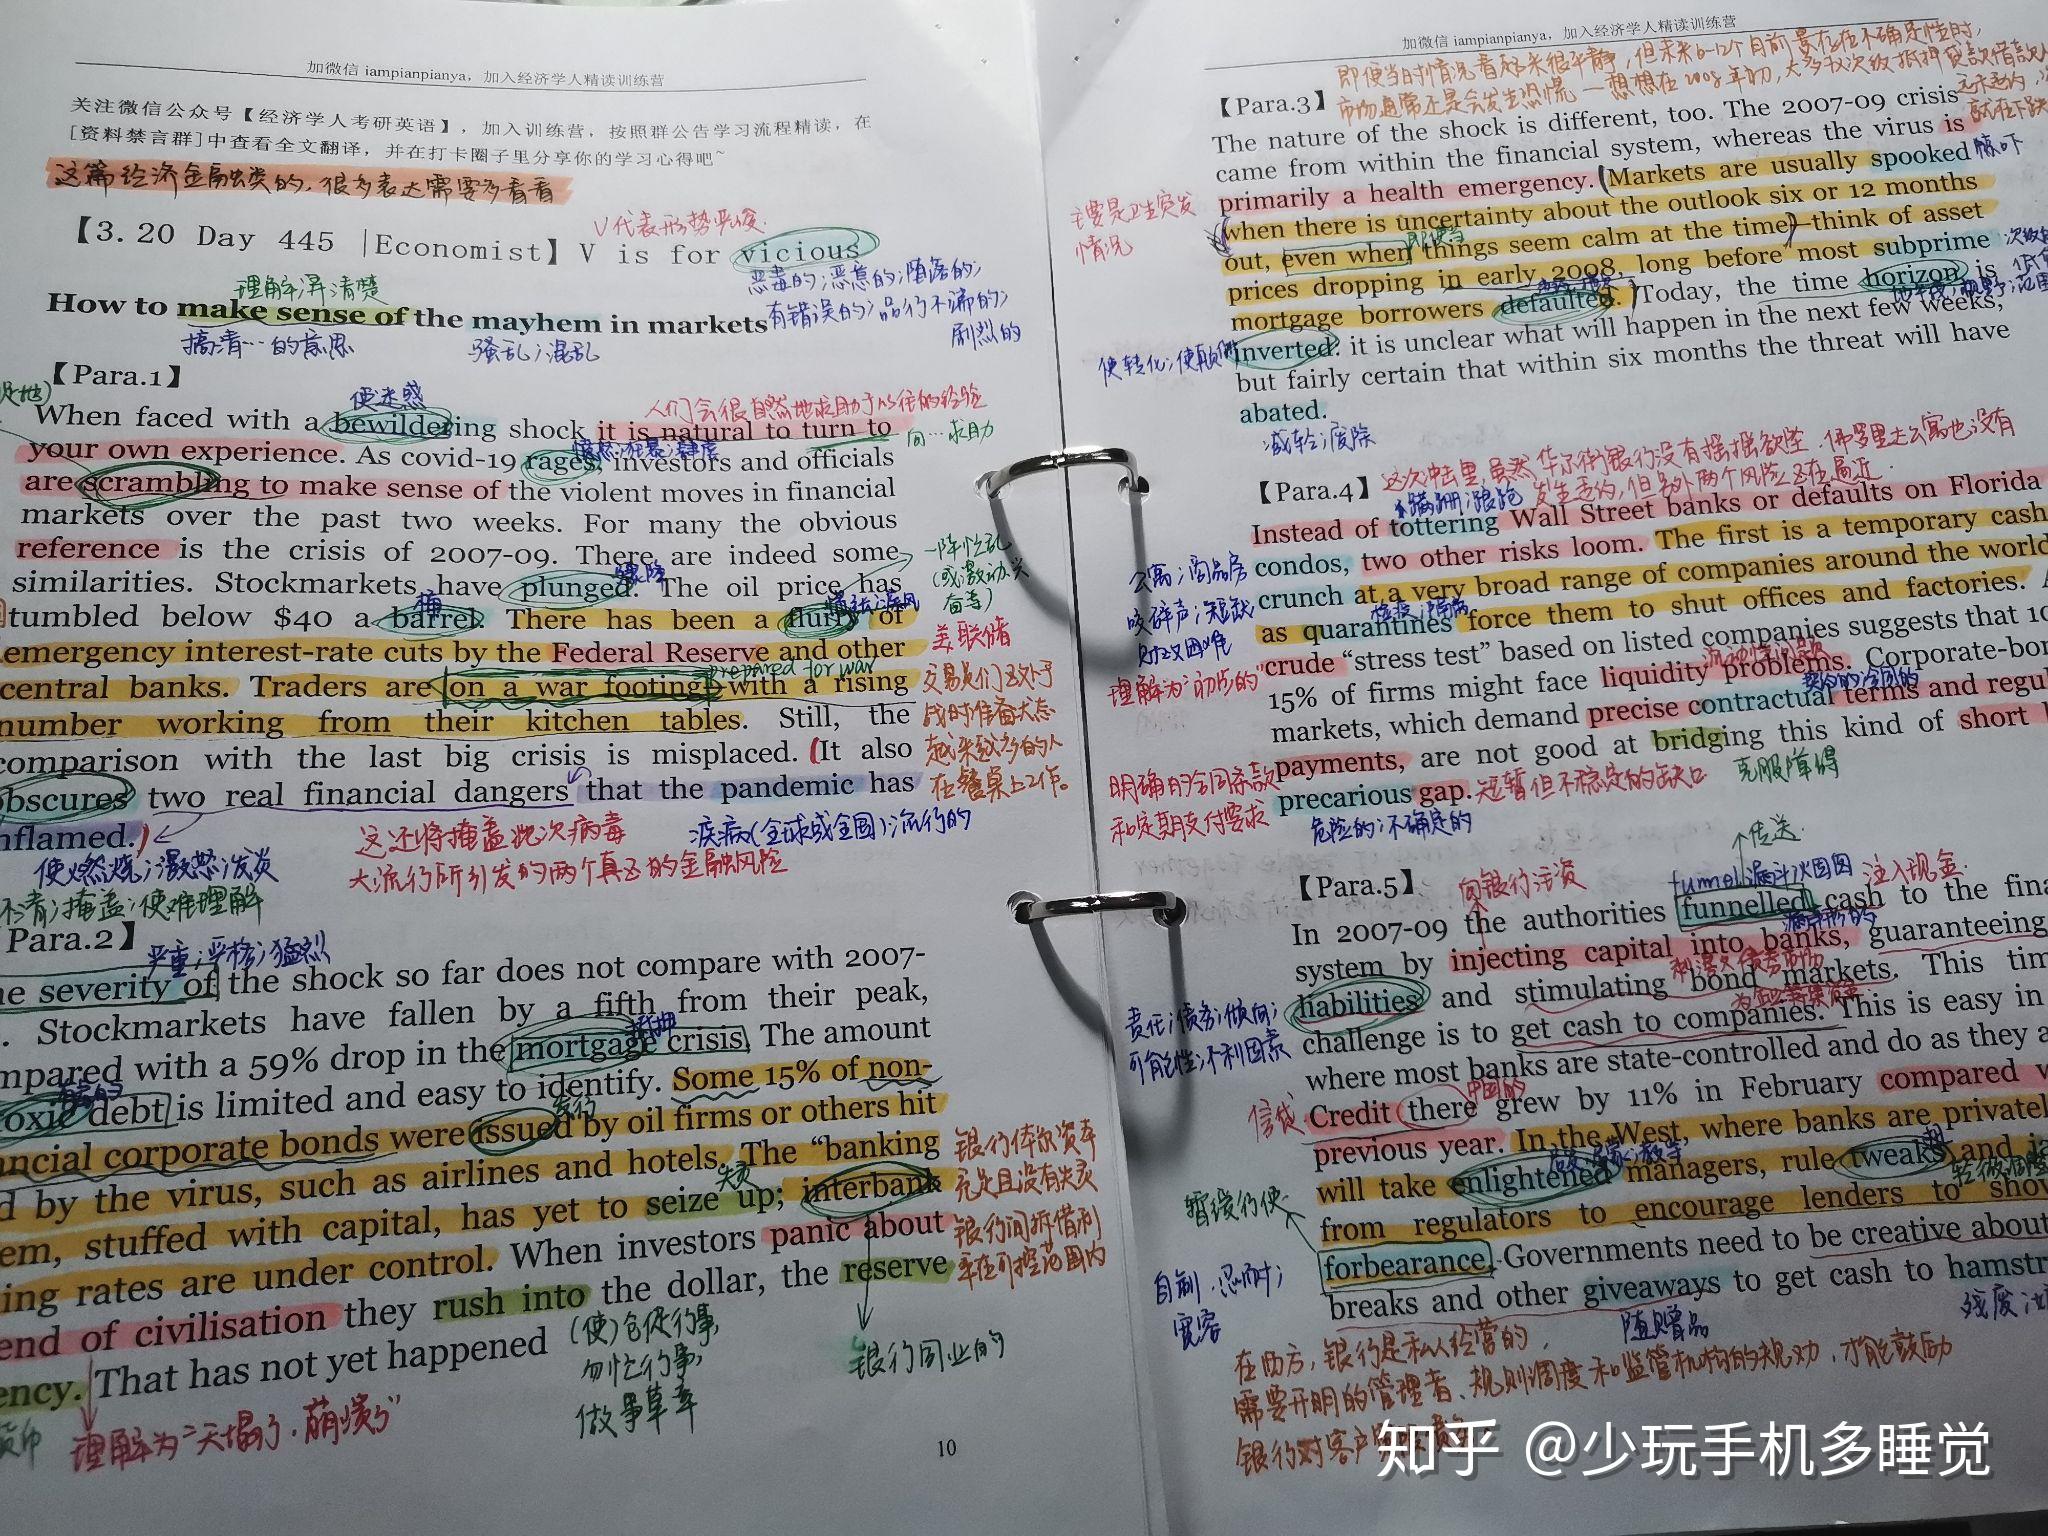 加微信 iampianpianya，加入经济学人精读训练营
关注微信公众号【经济学人考研英语】，加入训练营，按照群公告学习流程精读，在
[资料禁言群]中查看全文翻译，并在打卡圈子里分享你的学习心得吧~
这篇经济金融类的，很多表达需要多看看
V代表形势严峻.
【3.20 Day 445 |Economist】V is for vicious
理解弄清楚
恶毒的；恶意的；堕落的；
有错误的；品行不端的；
剧烈的
How to make sense of the mayhem in markets
搞清…的意思
骚乱；混乱
【Para.1】
使迷惑
人们会很自然地求助于以往的经验
When faced with a bewildering shock it is natural to turn to
向…求助
your own experience. As covid-19 rages, investors and officials
are scrambling to make sense of the violent moves in financial
markets over the past two weeks. For many the obvious
reference is the crisis of 2007-09. There are indeed some
similarities. Stockmarkets have plunged. The oil price has
一阵忙乱
(或激动、兴
奋等)
tumbled below $40 a barrel. There has been a flurry of
桶
emergency interest-rate cuts by the Federal Reserve and other
美联储
prepared for war
central banks. Traders are on a war footing with a rising
number working from their kitchen tables. Still, the
交易员们正处于
战时准备状态
越来越多的人
在餐桌上工作。
comparison with the last big crisis is misplaced. (It also
obscures two real financial dangers that the pandemic has
nflamed.)
这还将掩盖此次病毒
大流行所引发的两个真正的金融风险
疾病(全球或全国)流行的
使燃烧；激怒；发炎
不清；掩盖；使难理解
Para.2】
严重；严格；猛烈
e severity of the shock so far does not compare with 2007-
. Stockmarkets have fallen by a fifth from their peak,
mpared with a 59% drop in the mortgage crisis. The amount
抵押
oxic debt is limited and easy to identify. Some 15% of non-
发行
ncial corporate bonds were issued by oil firms or others hit
d by the virus, such as airlines and hotels. The “banking
失灵
em, stuffed with capital, has yet to seize up; interbank
银行体系资本
充足且没有失灵
银行间拆借利
率在可控范围内
ing rates are under control. When investors panic about
end of civilisation they rush into the dollar, the reserve
ency. That has not yet happened
(使)仓促行事,
勿忙行事,
做事草率
银行同业的
理解为“天塌了，崩溃了”
10
加微信 iampianpianya，加入经济学人精读训练营
即便当时情况看起来很平静，但未来6-12个月前景存在不确定性时，
市场通常还是会发生恐慌—想想在2008年初，大多数次级抵押贷款借款人
【Para.3】
The nature of the shock is different, too. The 2007-09 crisis
came from within the financial system, whereas the virus is
primarily a health emergency. (Markets are usually spooked
惊吓
主要是卫生突发
情况
when there is uncertainty about the outlook six or 12 months
即便当
out, even when things seem calm at the time)—think of asset
prices dropping in early 2008, long before most subprime
mortgage borrowers defaulted. Today, the time horizon is
使转化；使颠倒
inverted: it is unclear what will happen in the next few weeks,
but fairly certain that within six months the threat will have
abated.
减轻；废除
这次冲击里，虽然华尔街银行没有摇摇欲坠，佛罗里达公寓也没有
发生违约，但另外两个风险正在逼近.
【Para.4】
蹒跚；踉跄
Instead of tottering Wall Street banks or defaults on Florida
condos, two other risks loom. The first is a temporary cash
公寓；商品房
crunch at a very broad range of companies around the world
咬碎声；短缺
财政困难
as quarantines force them to shut offices and factories. A
crude “stress test” based on listed companies suggests that 10
理解为“初步的”
15% of firms might face liquidity problems. Corporate-bon
流动性问题
markets, which demand precise contractual terms and regul
payments, are not good at bridging this kind of short b
明确的合同条款
和定期支付要求
precarious gap. 短暂但不稳定的缺口
克服障碍
危险的；不确定的
传送
【Para.5】
向银行注资
funnel 漏斗状图
注入现金.
In 2007-09 the authorities funnelled cash to the fina
system by injecting capital into banks, guaranteeing
刺激债券市场
liabilities and stimulating bond markets. This tim
责任；债务；倾向；
可能性；不利因素
challenge is to get cash to companies. This is easy in
where most banks are state-controlled and do as they a
中国的
信贷
Credit there grew by 11% in February compared w
previous year. In the West, where banks are privatel
will take enlightened managers, rule tweaks and ja
from regulators to encourage lenders to show
暂缓行使
forbearance. Governments need to be creative about
自制；忍耐；
宽容
breaks and other giveaways to get cash to hamstr
随赠品
在西方，银行是私人经营的，
需要开明的管理者、规则调度和监管机构的规劝，才能鼓励
银行对客户
知乎 @少玩手机多睡觉